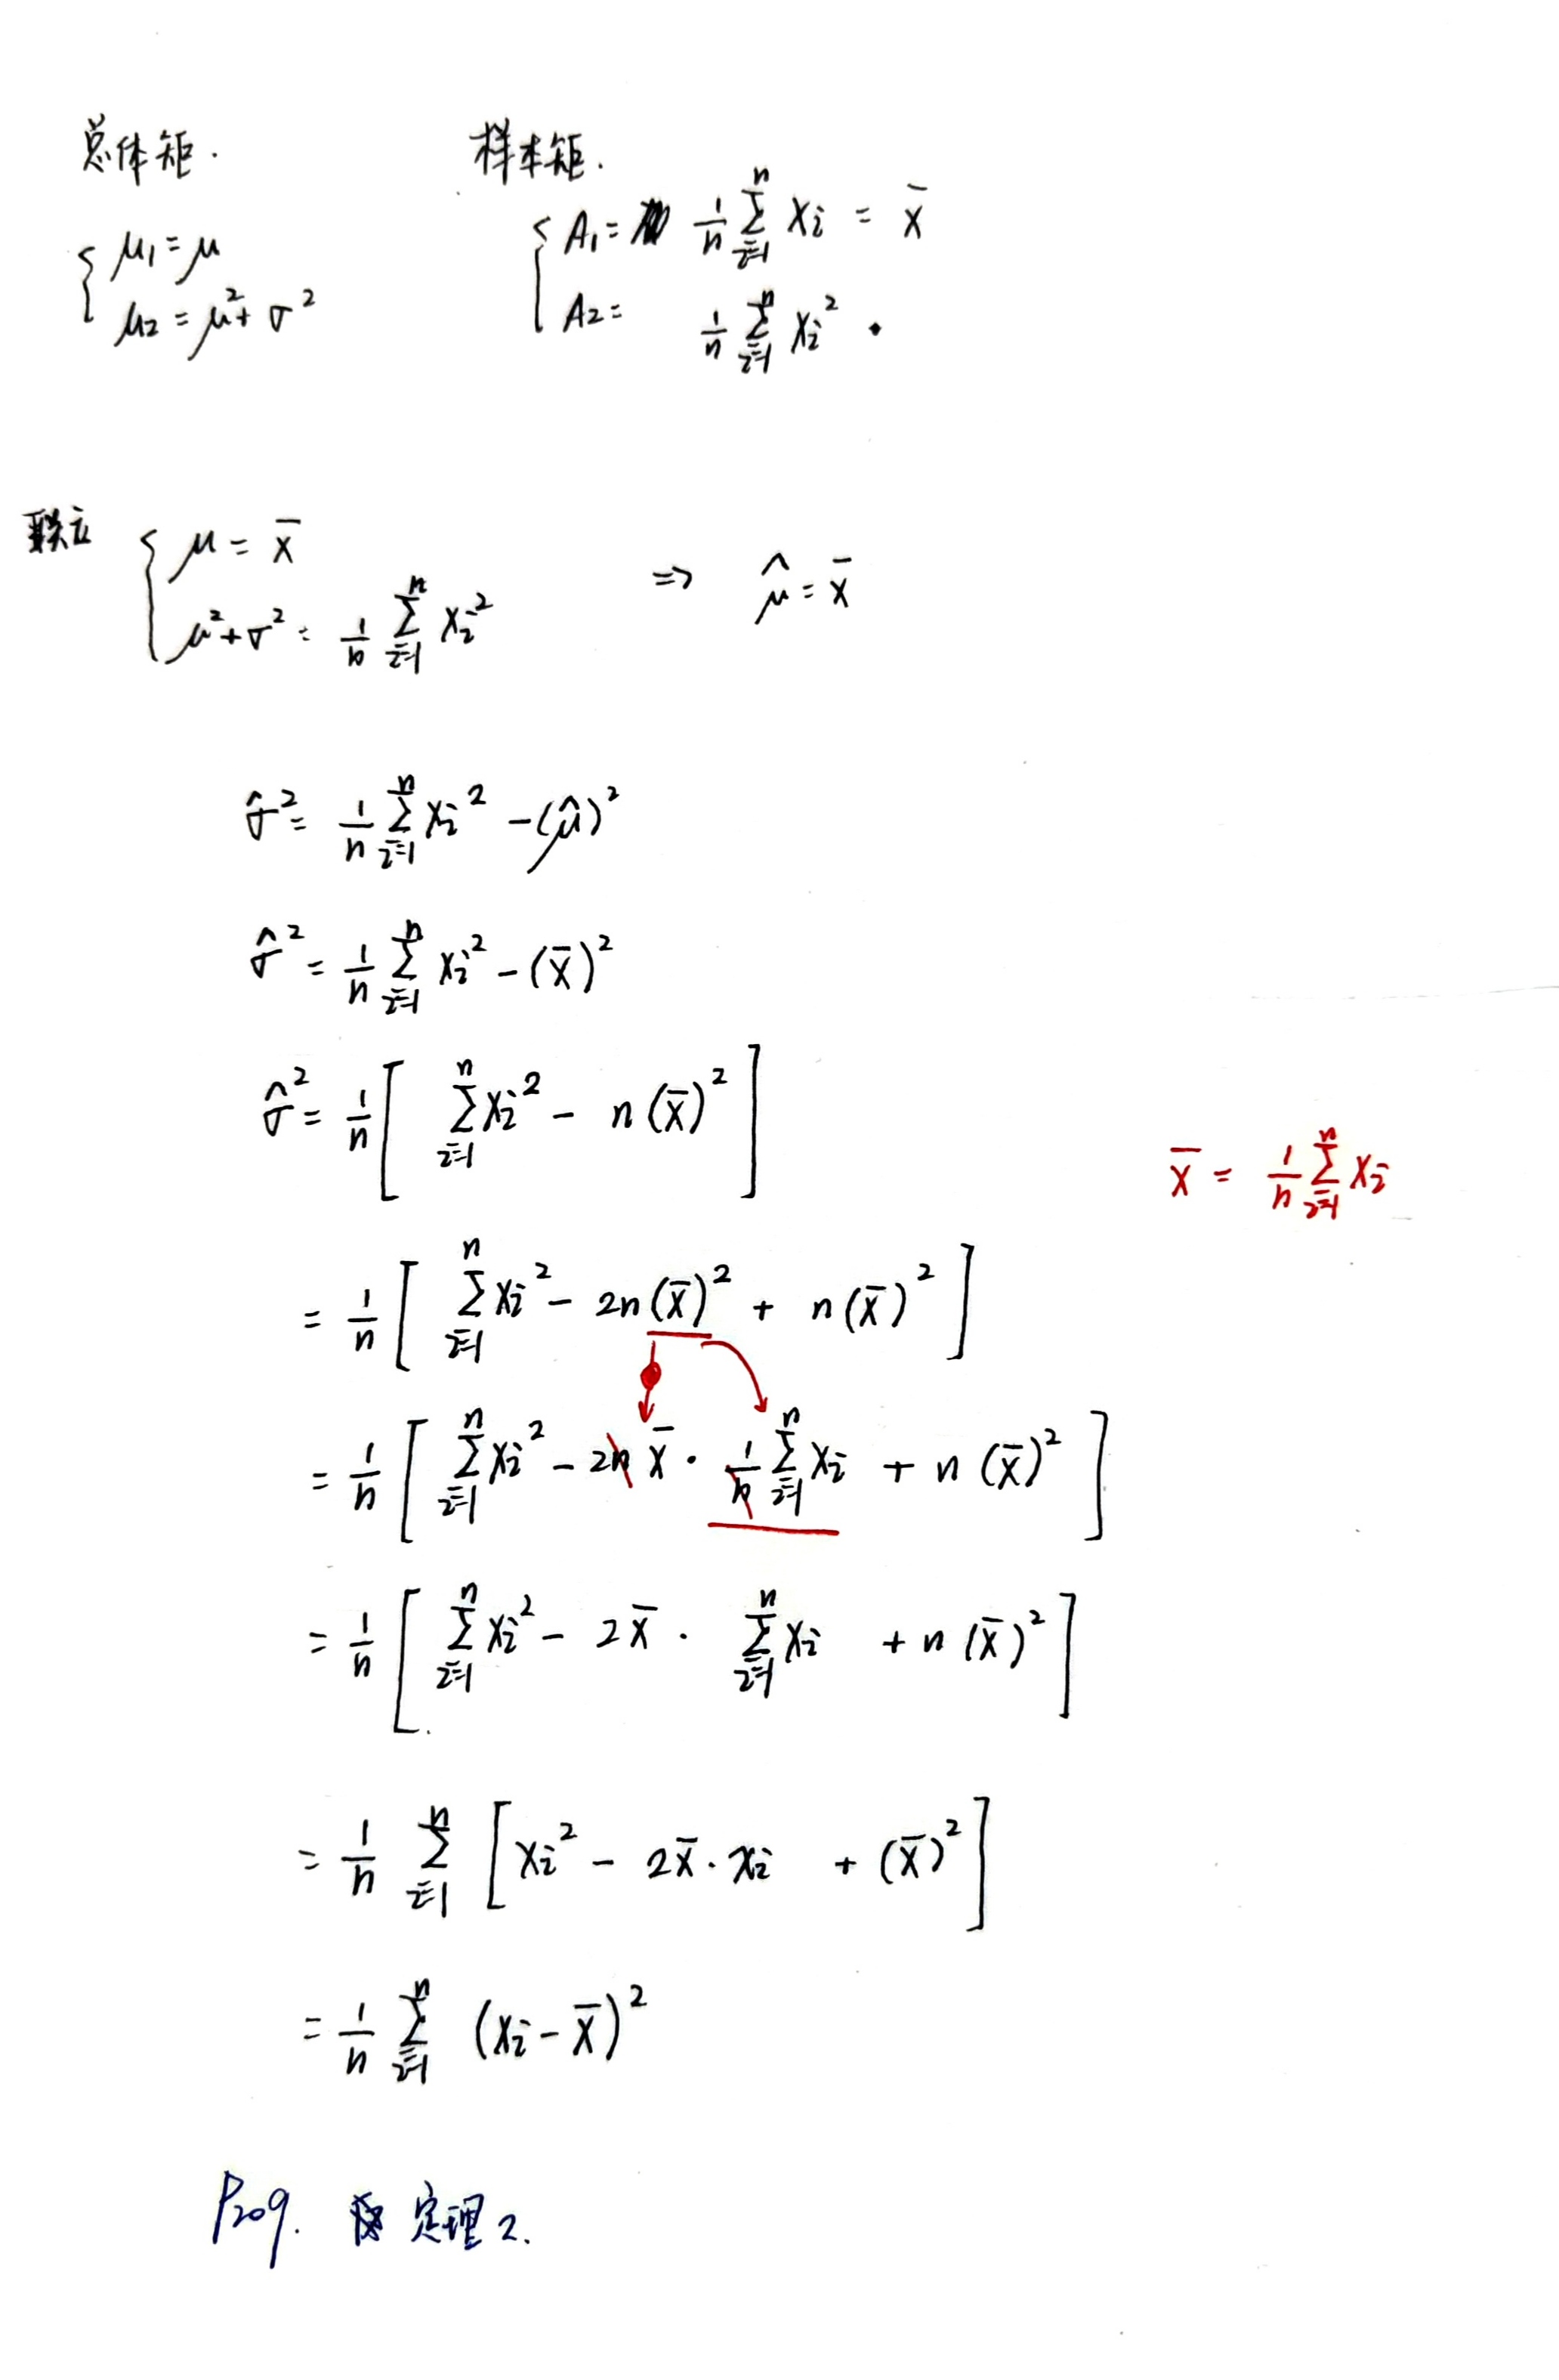 总体矩. 样本矩.
{ μ₁ = μ { A₁ = 1/n ∑_{i=1}^{n} Xi = X̄
μ₂ = μ² + σ² A₂ = 1/n ∑_{i=1}^{n} Xi² .
联立 { μ = X̄
μ² + σ² = 1/n ∑_{i=1}^{n} Xi² ⇒ μ̂ = X̄
σ̂² = 1/n ∑_{i=1}^{n} Xi² - (μ̂)²
σ̂² = 1/n ∑_{i=1}^{n} Xi² - (X̄)²
σ̂² = 1/n [ ∑_{i=1}^{n} Xi² - n(X̄)² ]
X̄ = 1/n ∑_{i=1}^{n} Xi
= 1/n [ ∑_{i=1}^{n} Xi² - 2n(X̄)² + n(X̄)² ]
= 1/n [ ∑_{i=1}^{n} Xi² - 2n X̄ · 1/n ∑_{i=1}^{n} Xi + n(X̄)² ]
= 1/n [ ∑_{i=1}^{n} Xi² - 2X̄ · ∑_{i=1}^{n} Xi + n(X̄)² ]
= 1/n ∑_{i=1}^{n} [ Xi² - 2X̄ · xi + (X̄)² ]
= 1/n ∑_{i=1}^{n} (Xi - X̄)²
P209. 定理2.